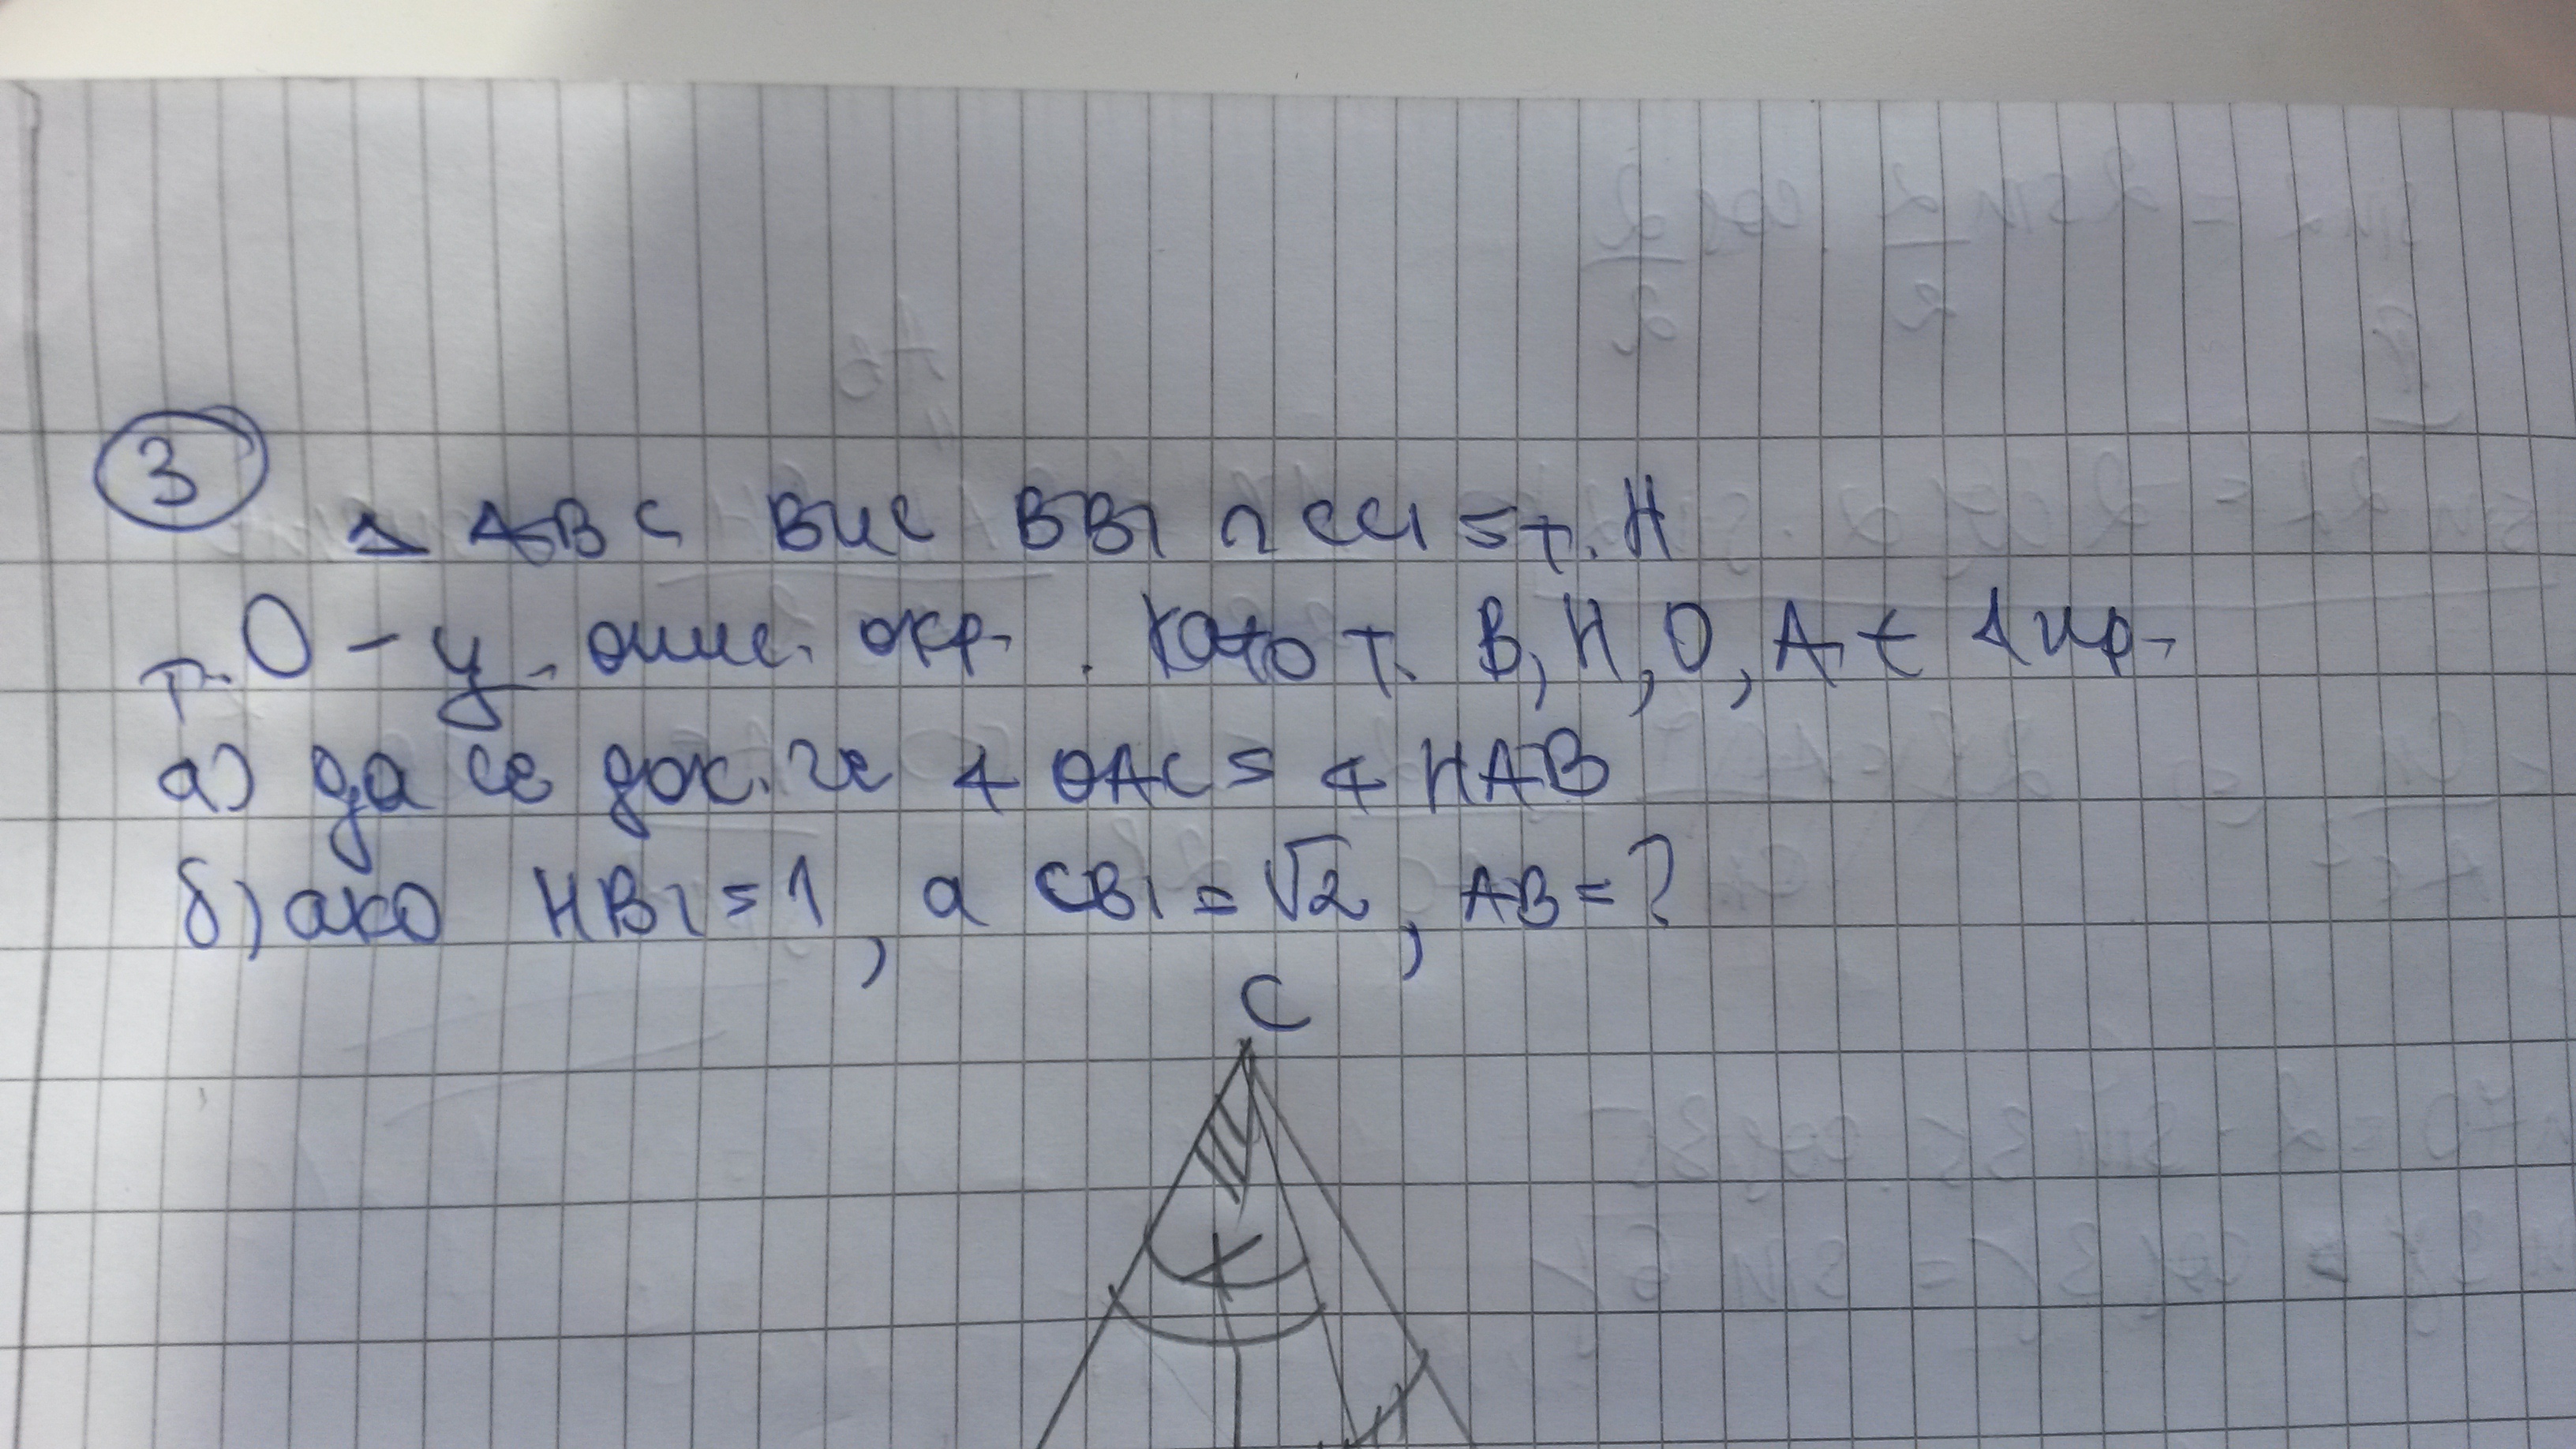 3
△ ABC вис BB1 ∩ CC1 = т. H
т. O - ц. опис. окр. като т. B, H, O, A ∈ 1 кр.
а) да се док. че ∢ OAC = ∢ HAB
б) ако HB1 = 1, а CB1 = √2, AB = ?
C